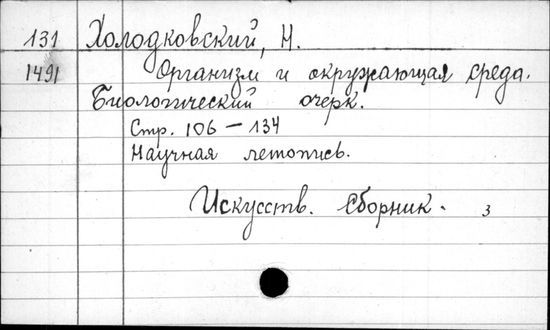 131 Холодковский, Н.
1491 Организм и окружающая среда.
Биологический очерк.
Стр. 106 – 134
Научная летопись.
Искусств. Сборник. 3